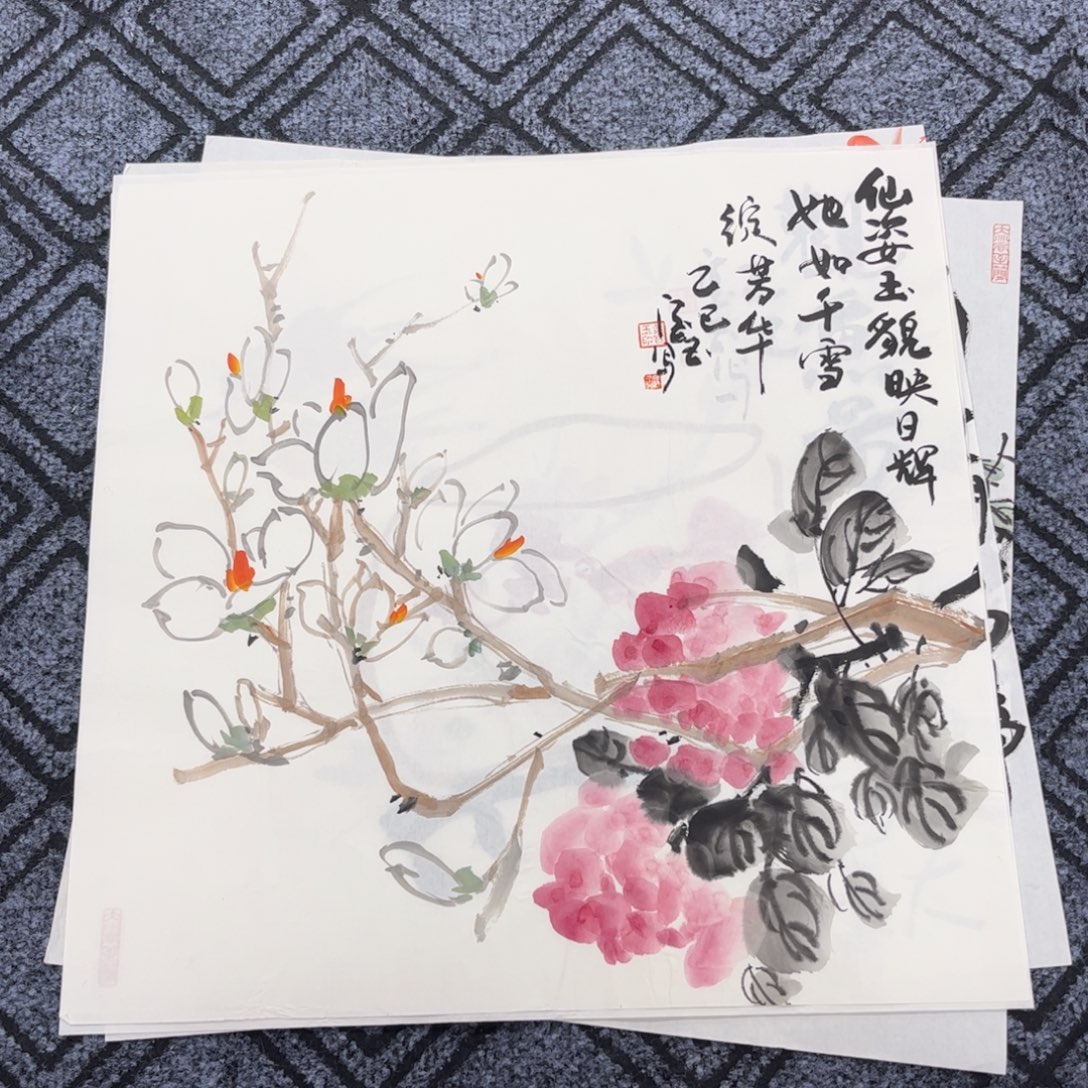 仙姿玉貌映日辉
她如千雪
绽芳华
乙巳
写